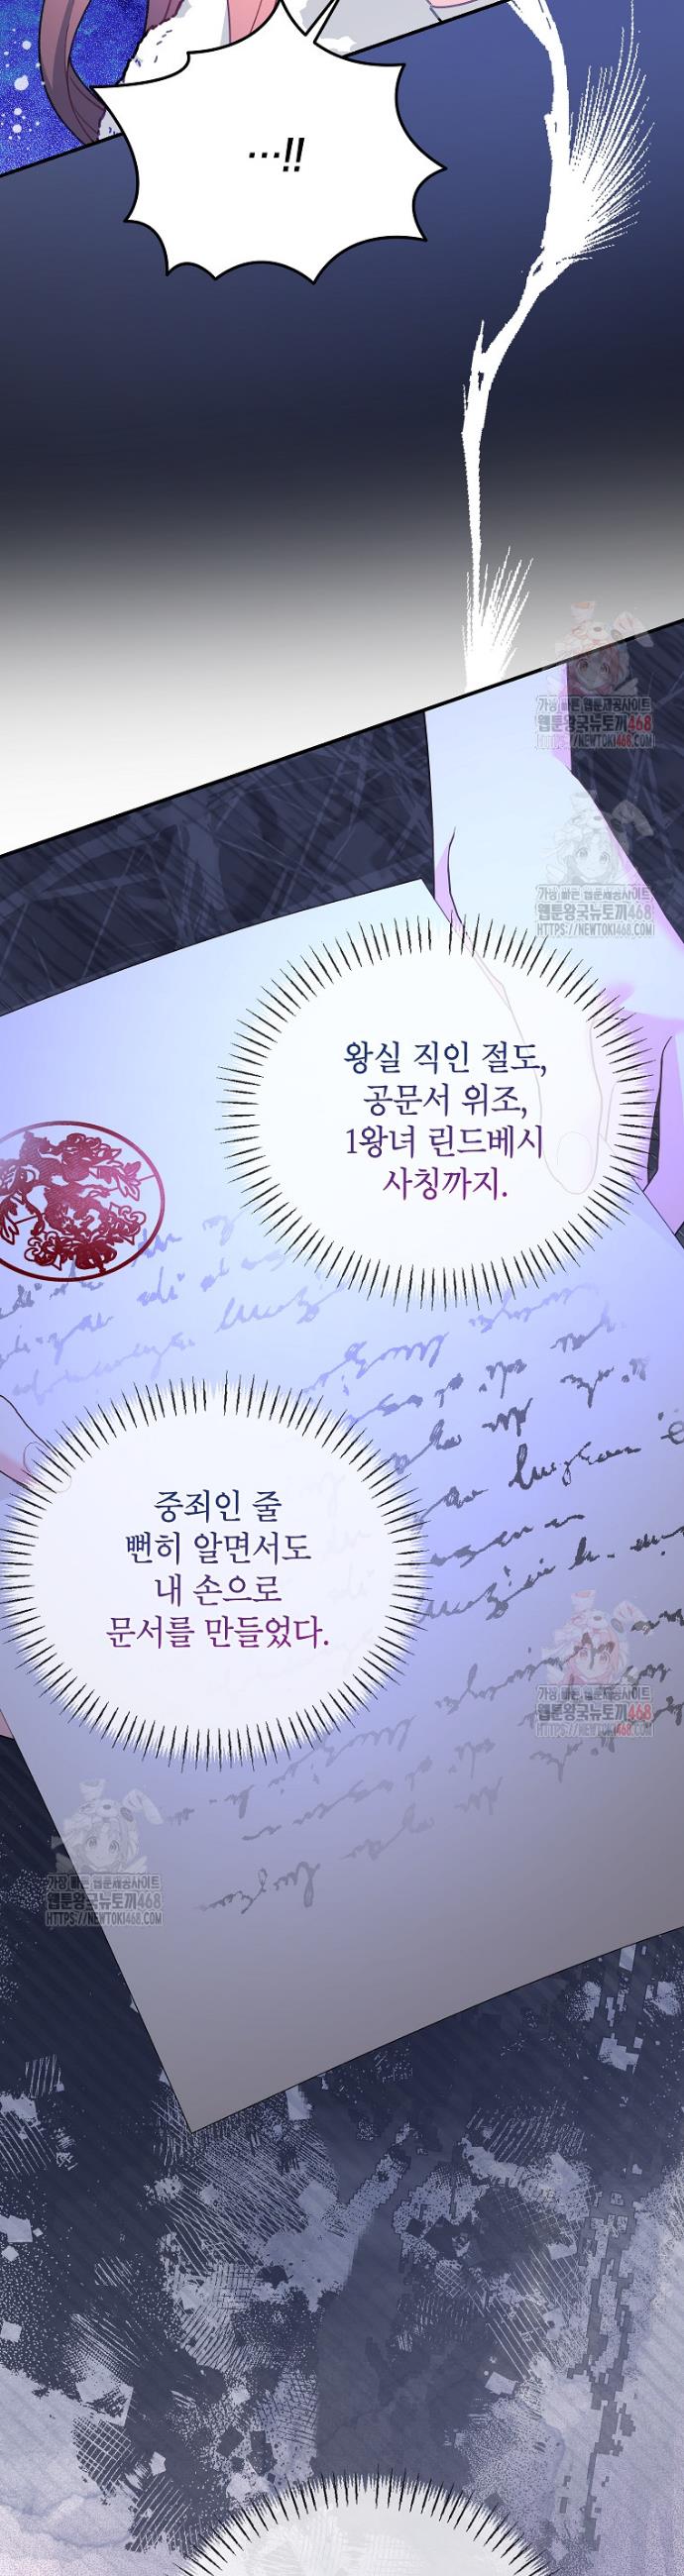 ...!!
가장 빠른 웹툰제공사이트
웹툰왕국뉴토끼468
HTTPS://NEWTOKI468.COM
가장 빠른 웹툰제공사이트
웹툰왕국뉴토끼468
HTTPS://NEWTOKI468.COM
왕실 직인 절도,
공문서 위조,
1왕녀 린드베시
사칭까지.
중죄인 줄
뻔히 알면서도
내 손으로
문서를 만들었다.
가장 빠른 웹툰제공사이트
웹툰왕국뉴토끼468
HTTPS://NEWTOKI468.COM
가장 빠른 웹툰제공사이트
웹툰왕국뉴토끼468
HTTPS://NEWTOKI468.COM